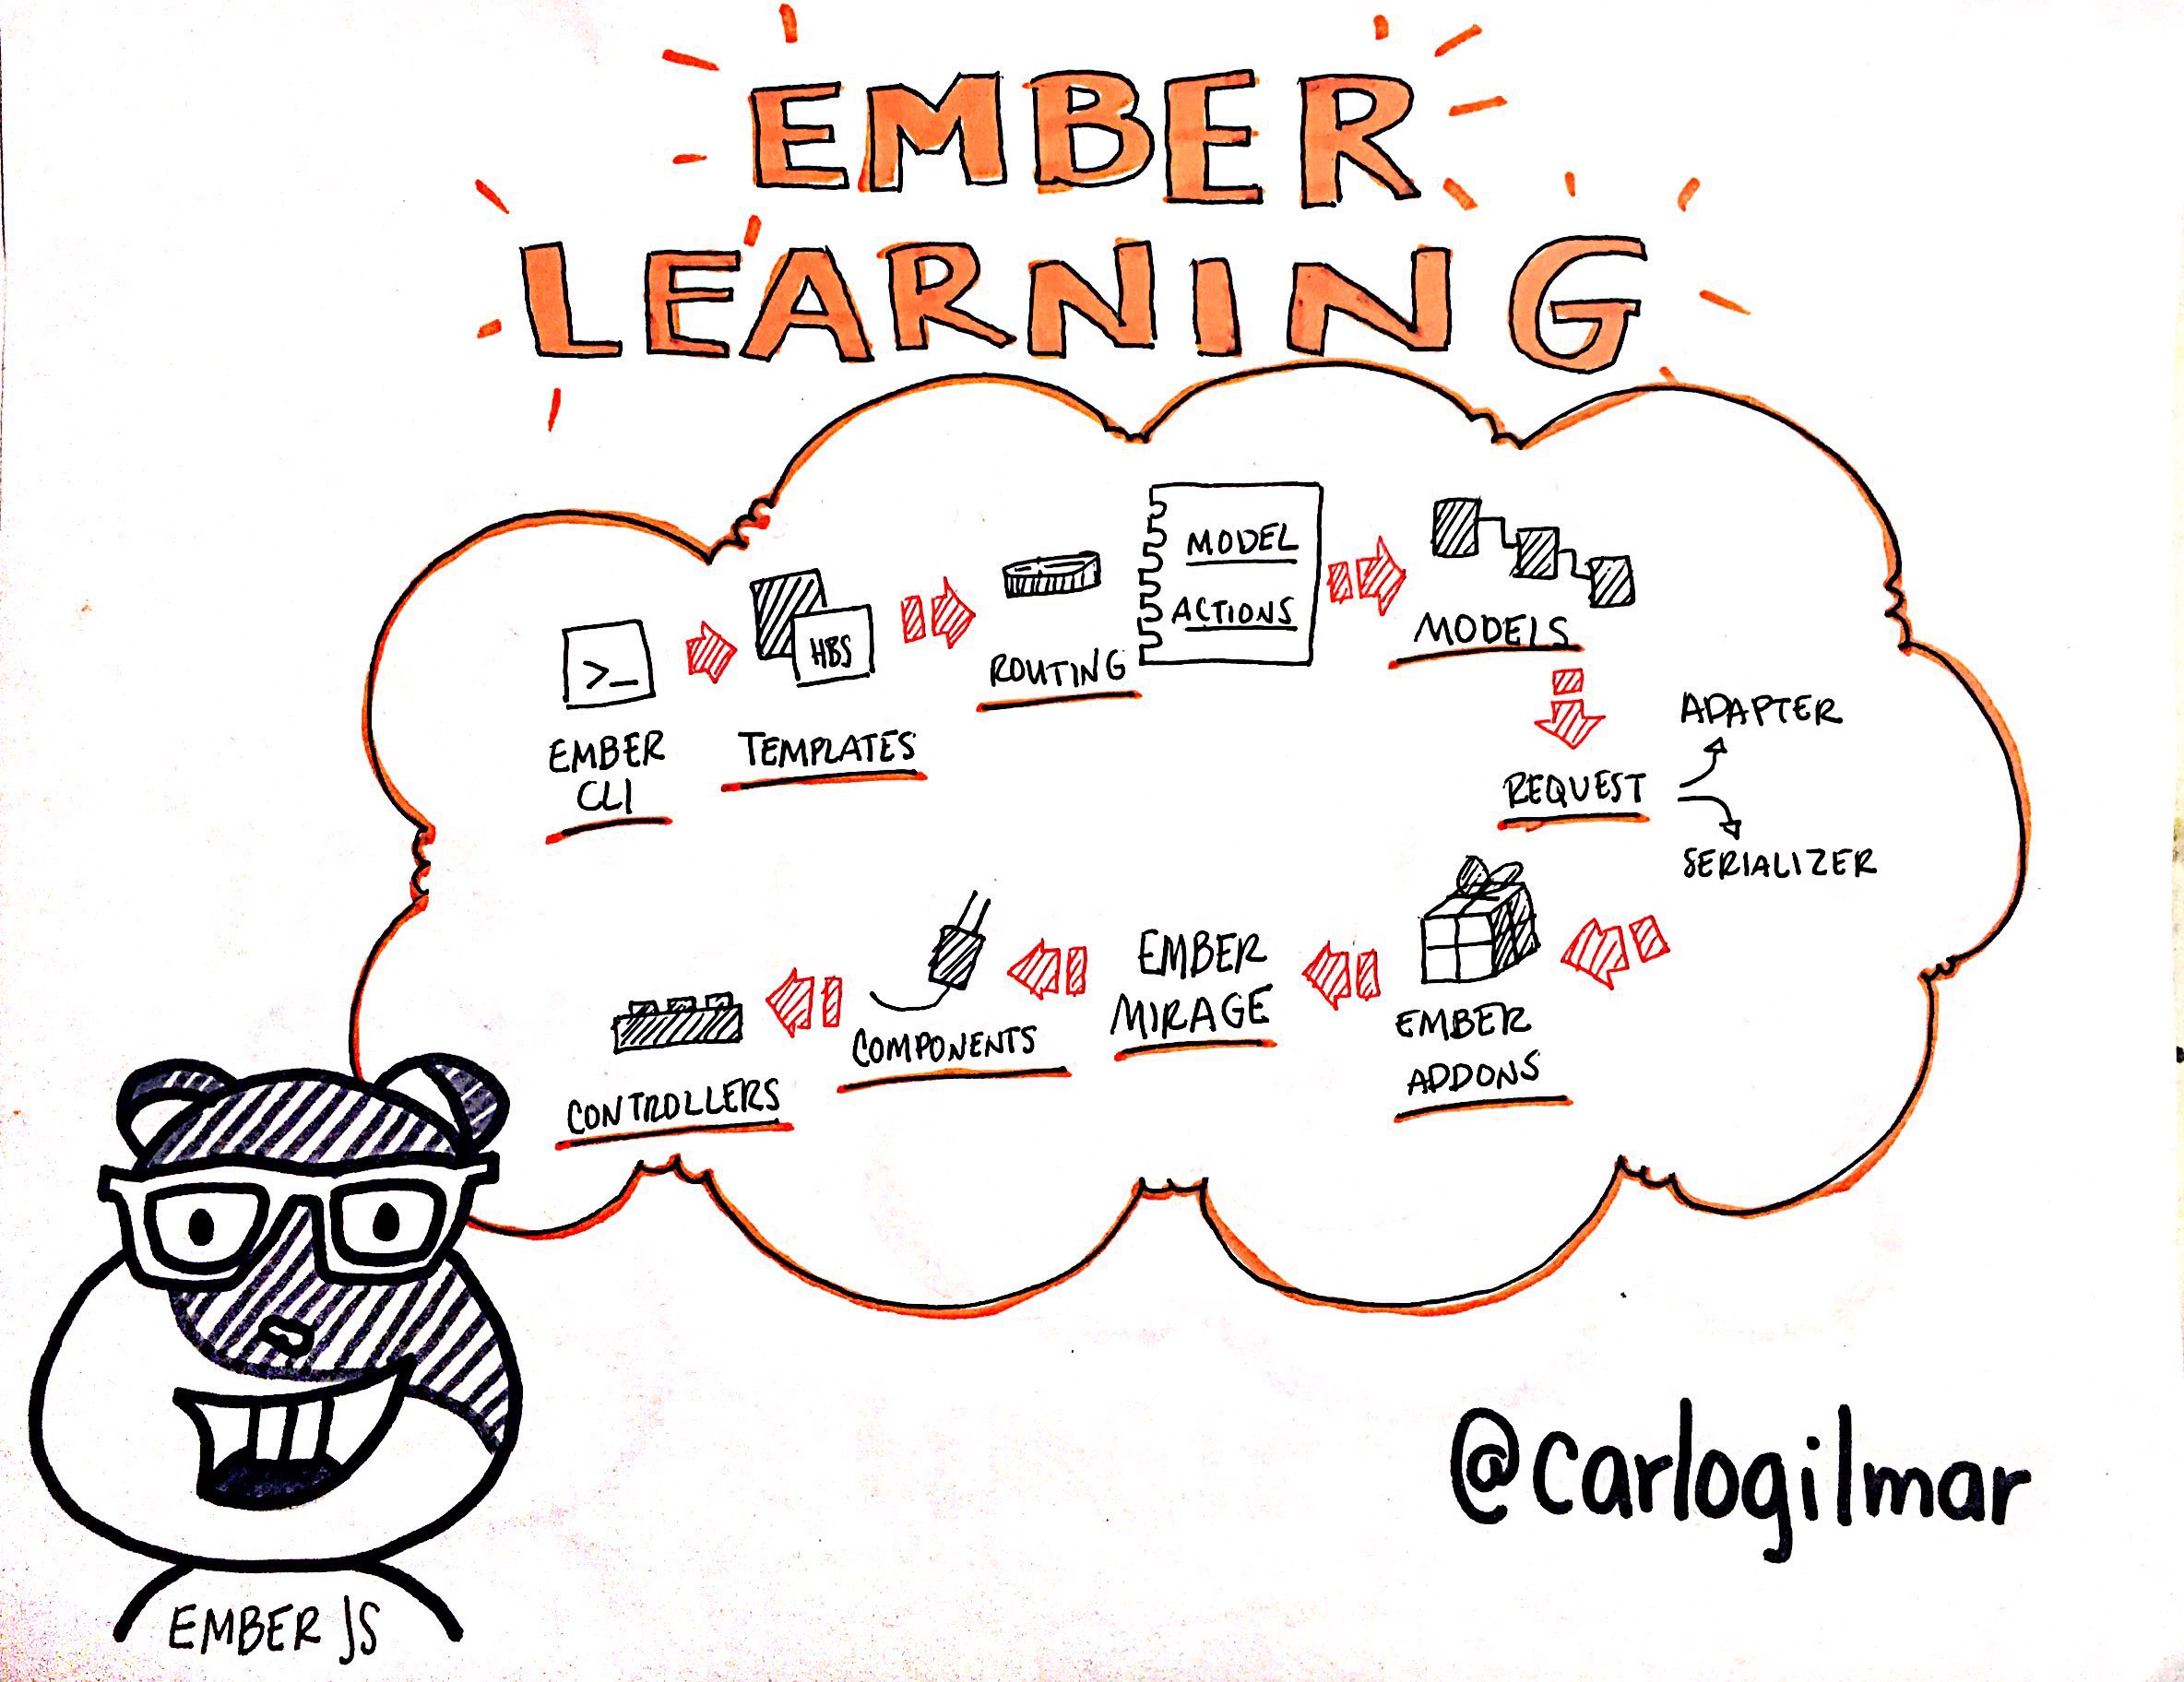 EMBER
LEARNING
>_
EMBER
CLI
HBS
TEMPLATES
ROUTING
MODEL
ACTIONS
MODELS
REQUEST
ADAPTER
SERIALIZER
EMBER
ADDONS
EMBER
MIRAGE
COMPONENTS
CONTROLLERS
EMBER JS
@carlogilmar